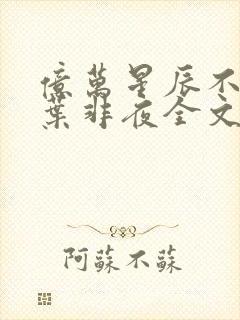 億萬星辰不
葉非夜全文
阿蘇不蘇